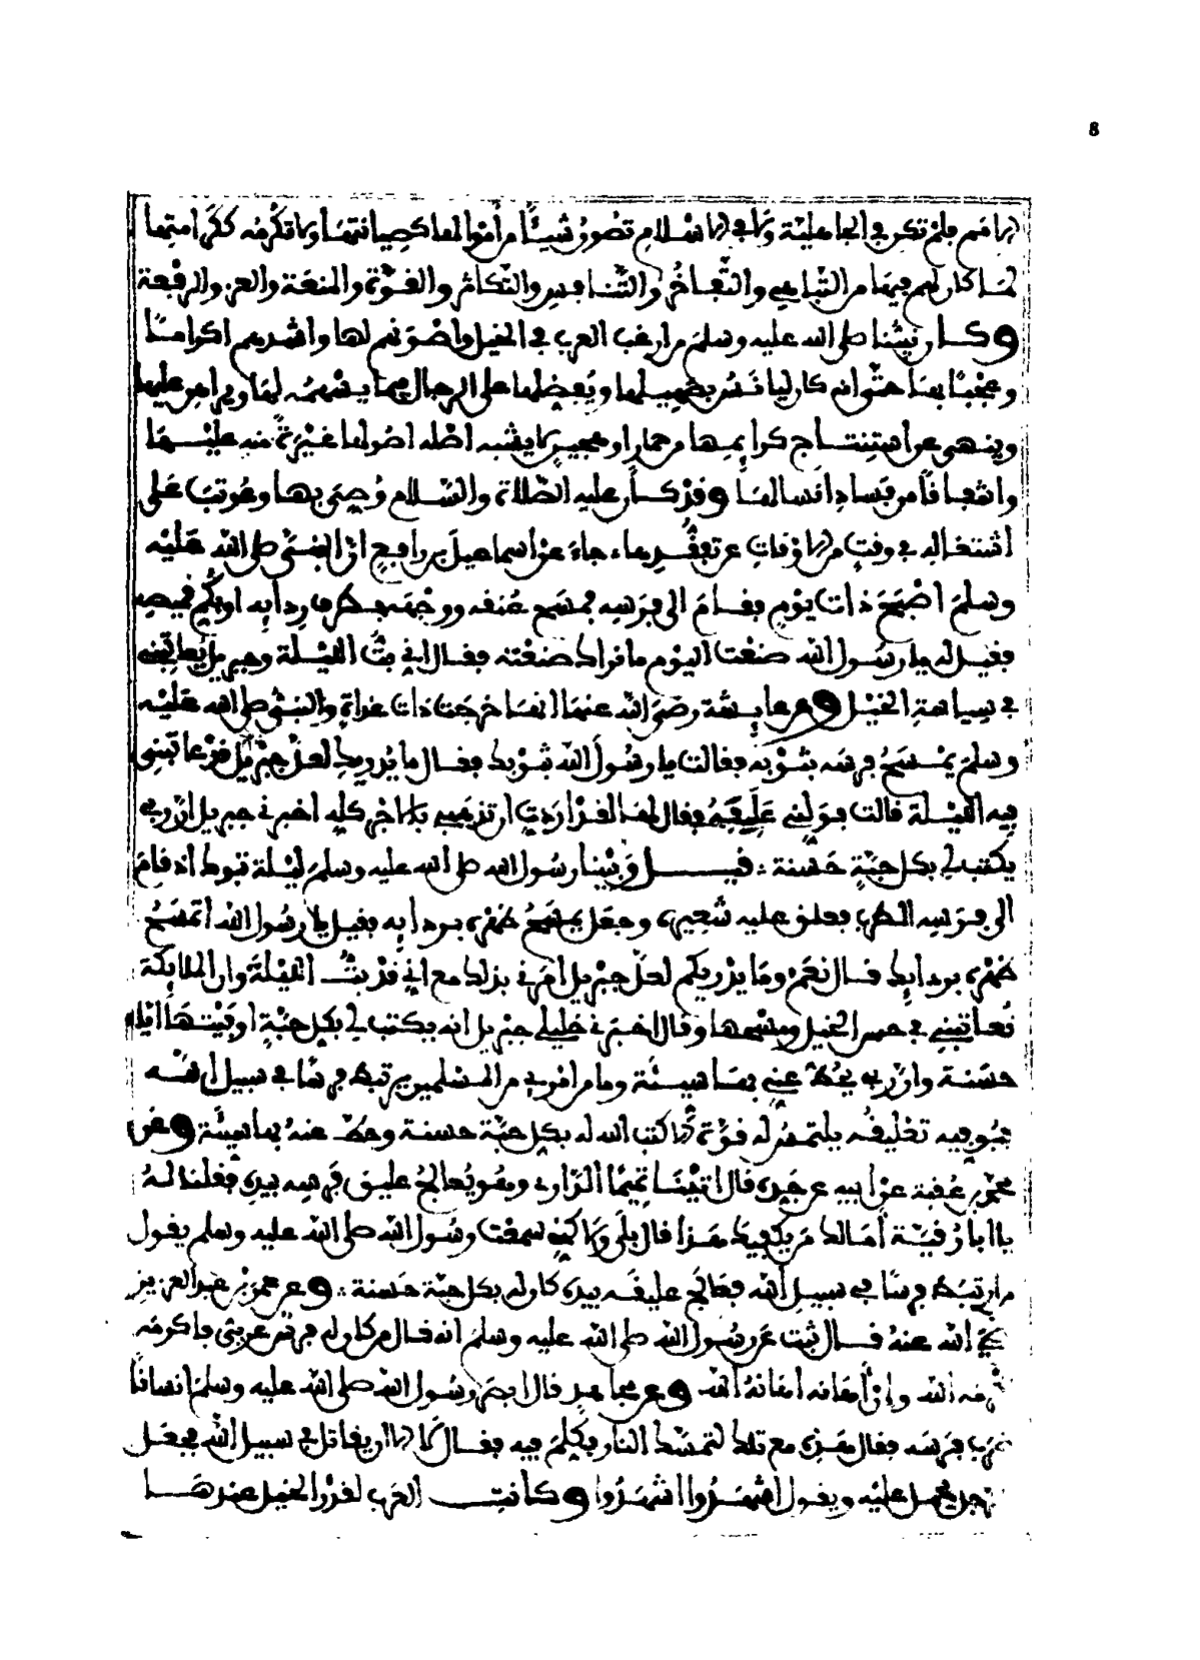 8
الامم فلم تكن في الجاهلية ولا في الاسلام تصون شيئا من أموالها كصيانتها ولا تكرمه ككرامتها
لما كان لهم فيها من التباهي والتفاخر والتنافس والتكاثر والقوة والمنعة والعز والرفعة
وكان نبينا صلى الله عليه وسلم من ارغب العرب في الخيل واصونهم لها واشدهم اكراما
وعجبا بها حتى انه كان ليانس بصهيلها ويفضلها على الرجال فيما يسهمه لها ويراهن عليها
وينهى عن استنتاج كرايمها من حمار او هجين لا يشبه اصله اصولها غيرة منه عليها
واشفاقا من فساد انسالها وقد كان عليه الصلاة والسلام وصي بها وعوتب على
اشتغاله في وقت من الاوقات عن تفقدها جاء عن اسماعيل بن رافع ان النبي صلى الله عليه
وسلم اصبح ذات يوم فقام الى فرسه فمسح عنقه ووجهه بطرف ردايه او بكم قميصه
فقيل له يا رسول الله صنعت اليوم ما لم نراك صنعته فقال اني بت الليلة وجبريل يعاتبني
في سياسة الخيل وعن عايشة رضي الله عنها انها خرجت ذات غداة والنبي صلى الله عليه
وسلم يمسح فرسه بثوبه فقالت يا رسول الله بثوبك فقال ما يدريك لعل جبريل قد عاتبني
فيه الليلة قالت فولني عليقه فقال لها لقد اردت ان تذهبي بالاجر كله اخبرني جبريل ان ربي
يكتب لي بكل حبة حسنة قيل وبينا رسول الله صلى الله عليه وسلم ليلة تبوك اذ قام
الى فرسه الظرب فعلق عليه شعيره وجعل يمسح ظهره بردايه فقيل يا رسول الله اتمسح
ظهره بردايك قال نعم وما يدريكم لعل جبريل امرني بذلك مع اني قد بت الليلة وان الملايكة
تعاتبني في حس الخيل ومسحها وقال اخبرني خليلي جبريل انه يكتب لي بكل حبة اوفيتها اياه
حسنة وان ربي يحط عني بها سيئة وما من امرء من المسلمين يرتبط فرسا في سبيل الله
فيوفيه تعليفه يلتمس له قوة الا كتب الله له بكل حبة حسنة وحط عنه بها سيئة وعن
محمد بن عقبة عن ابيه عن جده قال اتينا تميما الداري وهو يعالج عليق فرسه بيده فقلنا له
يا ابا رقية أمالك من يكفيك هذا قال بلى ولاكني سمعت رسول الله صلى الله عليه وسلم يقول
من ارتبط فرسا في سبيل الله فعالج عليفه بيده كان له بكل حبة حسنة وعن عمر بن عبد العزيز
الله عنه قال ثبت عن رسول الله صلى الله عليه وسلم انه قال من كان له فرس عربي فاكرمه
الله وان أهانه أهانه الله وعن مجاهد قال ابصر رسول الله صلى الله عليه وسلم انسانا
ضرب فرسه فقال هذه مع تلك لتمسك النار فكلم فيه فقال لا الا ان يقاتل في سبيل الله فجعل
الرجل يحمل عليه ويقول اشهدوا اشهدوا وكانت العرب لقدر الخيل عندها